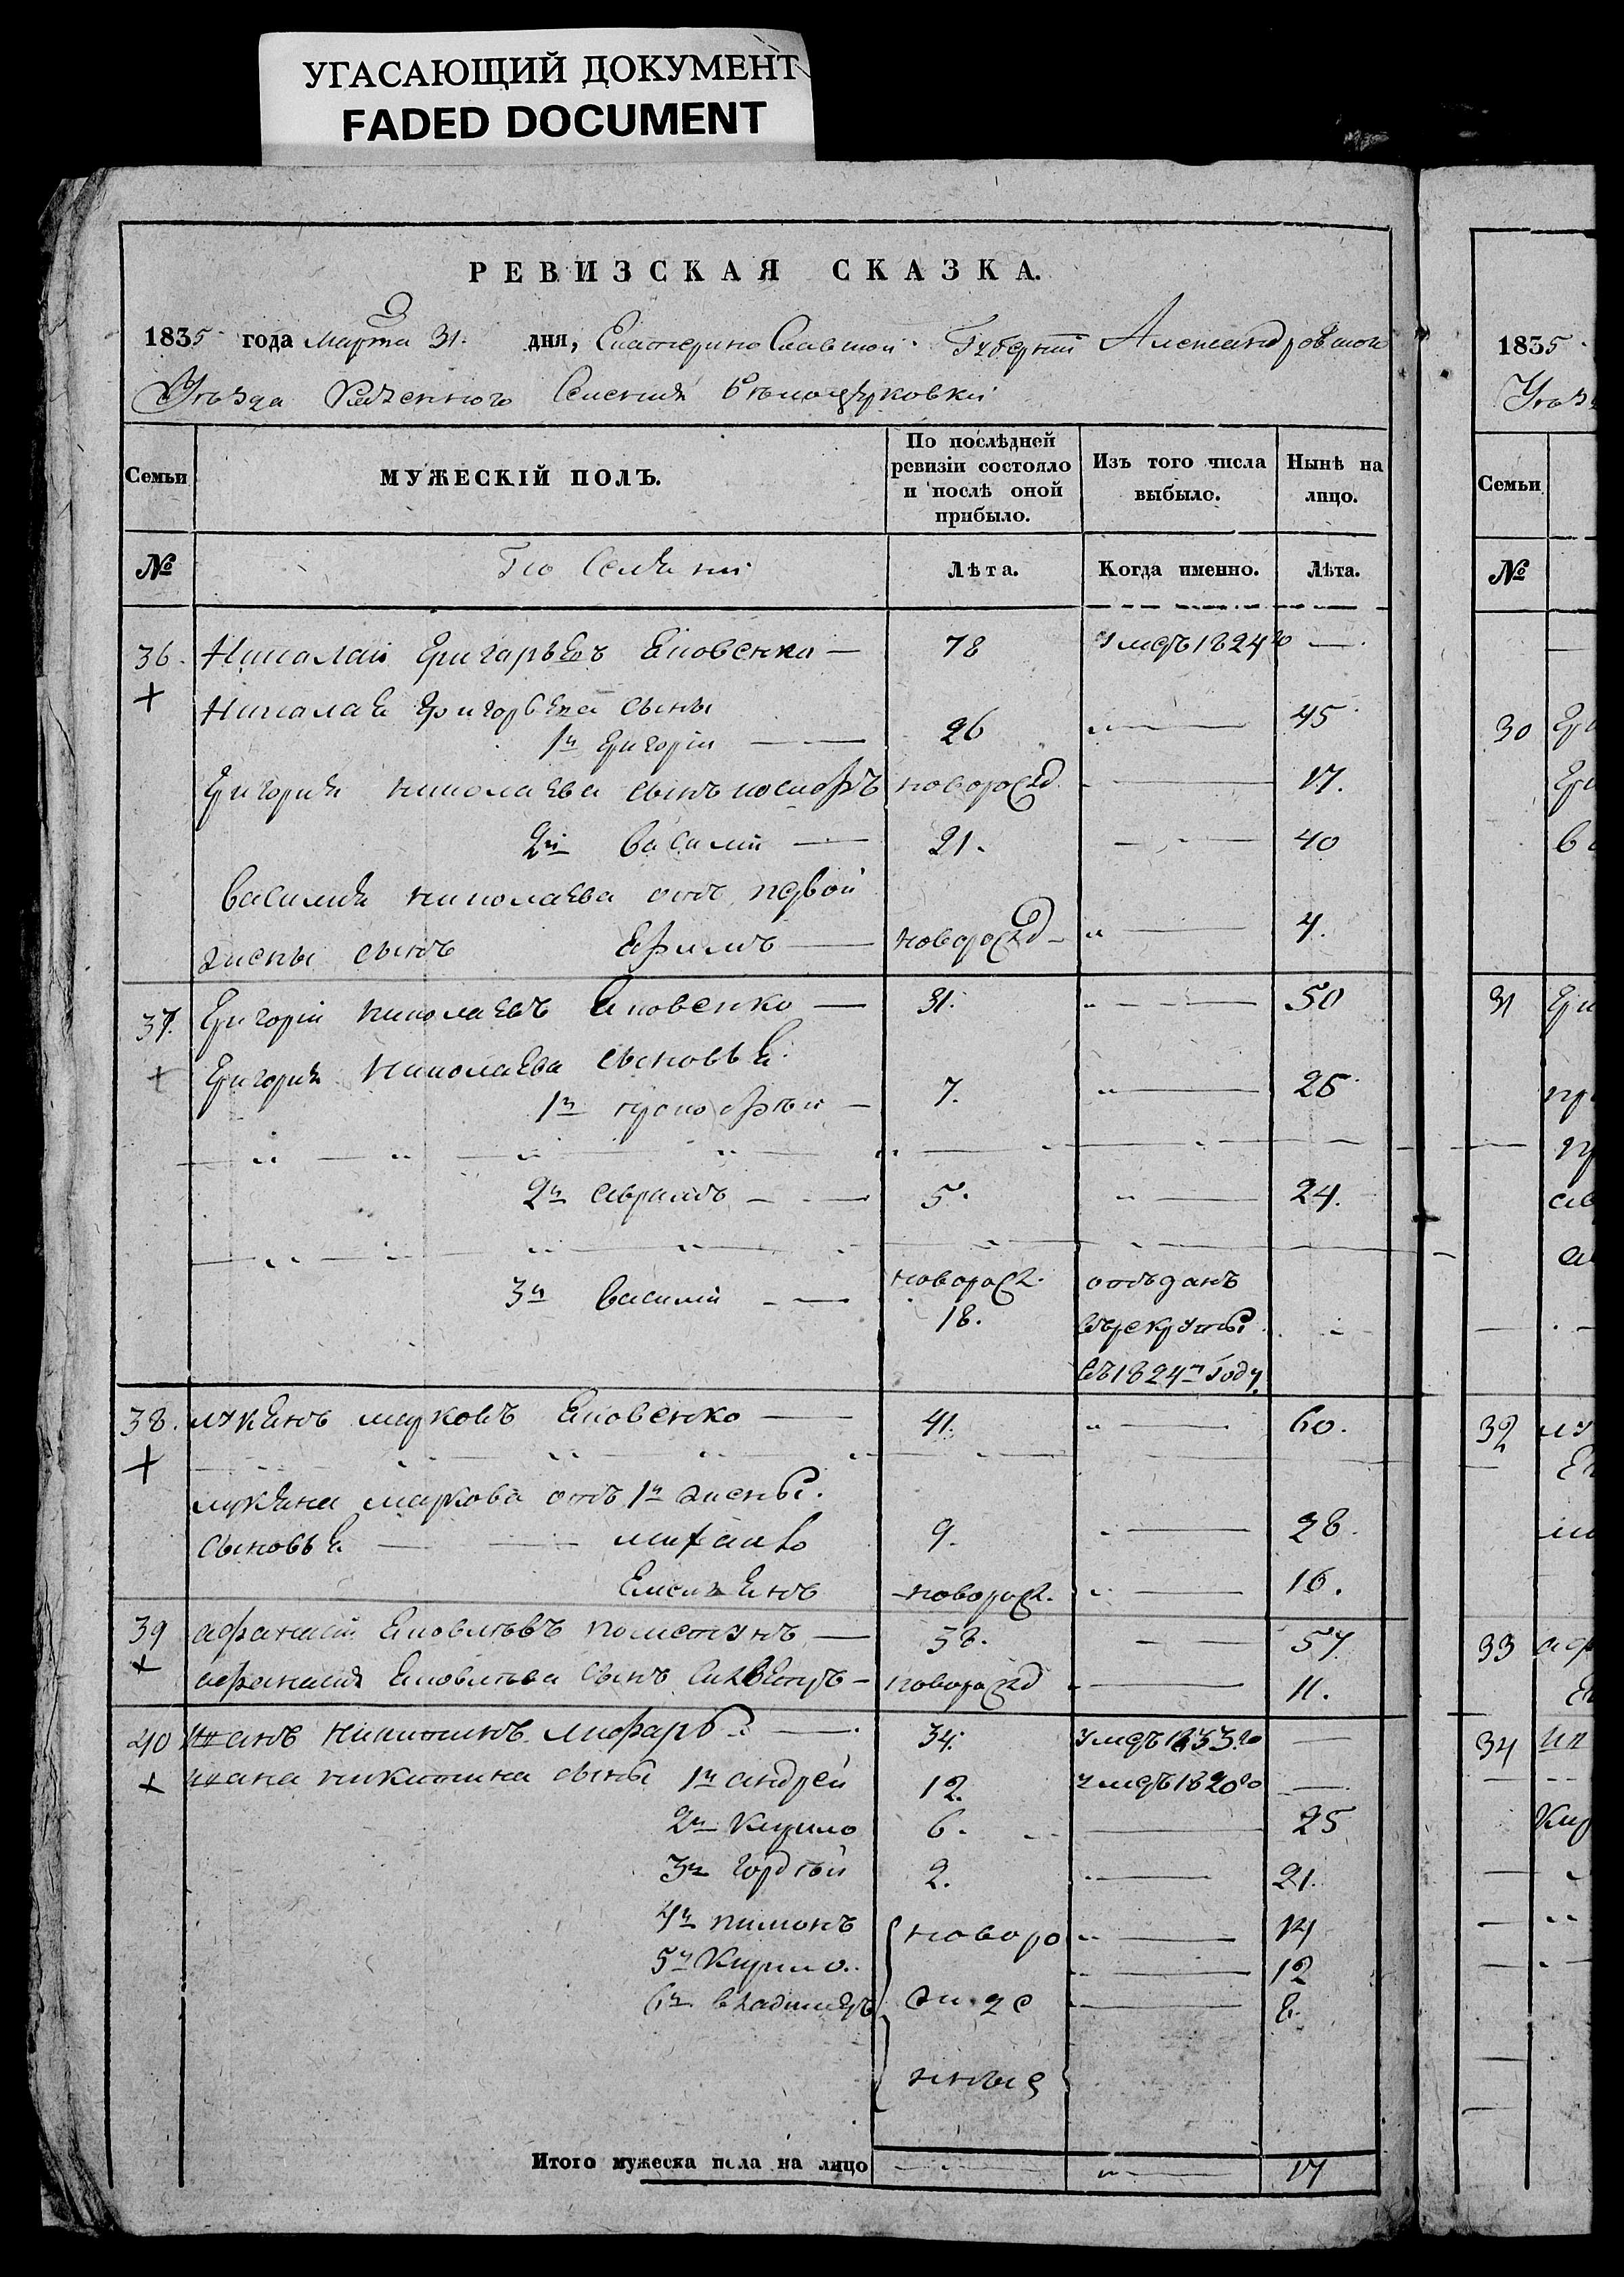 УГАСАЮЩИЙ ДОКУМЕНТ
FADED DOCUMENT
РЕВИЗСКАЯ СКАЗКА.
1835 года Марта 31. дня, Екатеринославской Губерніи Александровской
Уѣзда Казенного Селенія Бѣлоцерковки
Семьи МУЖЕСКІЙ ПОЛЪ. По послѣдней ревизіи состояло и послѣ оной прибыло. Изъ того числа выбыло. Нынѣ на лицо.
№ Лѣта. Когда именно. Лѣта.
36. Николай Григорьевъ Яковенко — 78 умеръ 1824го —
Николая Григорьева сыны
1й Григорій — 26 " — 45
Григорія Николаева сынъ новорожд — 17.
2й Василій — 21. — 40
Василія Николаева отъ первой
жены сынъ Ефимъ — новорожд — " — 4.
37. Григорій Николаевъ Яковенко — 31. " — 50
Григорія Николаева сыновья
1й Прокофѣй — 7. " — 26
2й Абрамъ — 5. " — 24.
3й Василій — новорож. отъданъ
18. въ рекруты
въ 1824м году
38. Лукянъ Марковъ Яковенко — 41. " — 60.
Лукяна Маркова отъ 1й жены
сыновья — Михайло 9. — 28.
новорож. " — 16.
39 Афанасій Яковлѣвъ — 38. — 57
Афанасія Яковлѣва сынъ — новорожд — 11.
40 Иванъ Никитинъ — 34. умеръ 1833го —
Ивана Никитина сыны 1й Андрей 12. умеръ 1820го —
2й Кирило 6. — 25
3й Гордѣй 2. " — 21.
4й Пимонъ новоро " — 14
5й Кирило. " — 12
6й Владимеръ жде — 8.
нные
Итого мужеска пола на лицо — " — 17
1835
Уѣз
Семьи
№
30
31
32
33
34